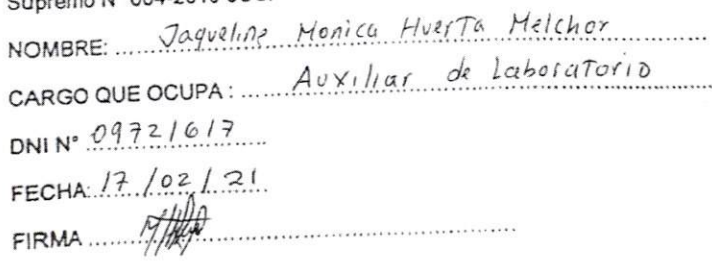 Supremo N° 004-2019-JUS.
NOMBRE: Jaqueline Monica Huerta Melchor
CARGO QUE OCUPA: Auxiliar de Laboratorio
DNI N° 09721617
FECHA: 17/02/21
FIRMA